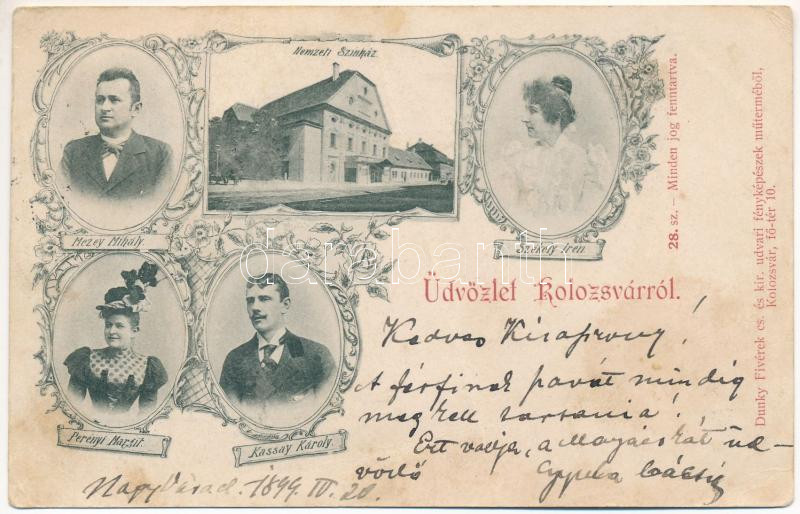 Nemzeti Szinház.
Mezey Mihály.
Székely Irén
Perényi Margit.
Kassay Károly.
Üdvözlet Kolozsvárról.
28. sz. – Minden jog fenntartva.
Dunky Fivérek cs. és kir. udvari fényképészek műterméből,
Kolozsvár, fő-tér 10.
Kedves Kisasszony!
A férfinak szavát mindig
meg kell tartania!
Ezt vallja, a Magácskát üd-
vözlő Gyula bácsi
Nagyvárad. 1899. IV. 20.
darabanth